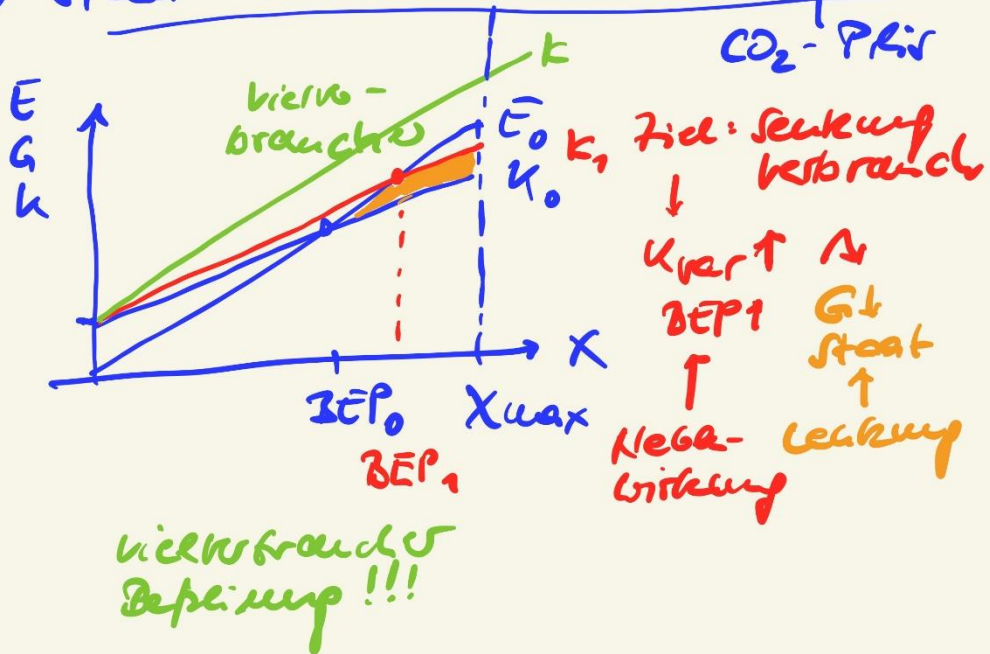 CO₂-Preis
E
G
K
Vielver-
braucher
K
E₀
K₁
K₀
Ziel: Senkung
Verbrauch
↓
Kvar ↑
BEP ↑
G↓
Staat
↑
↑
Neben-
wirkung
Lenkung
X
BEP₀
Xmax
BEP₁
Vielverbraucher
Bepreisung !!!